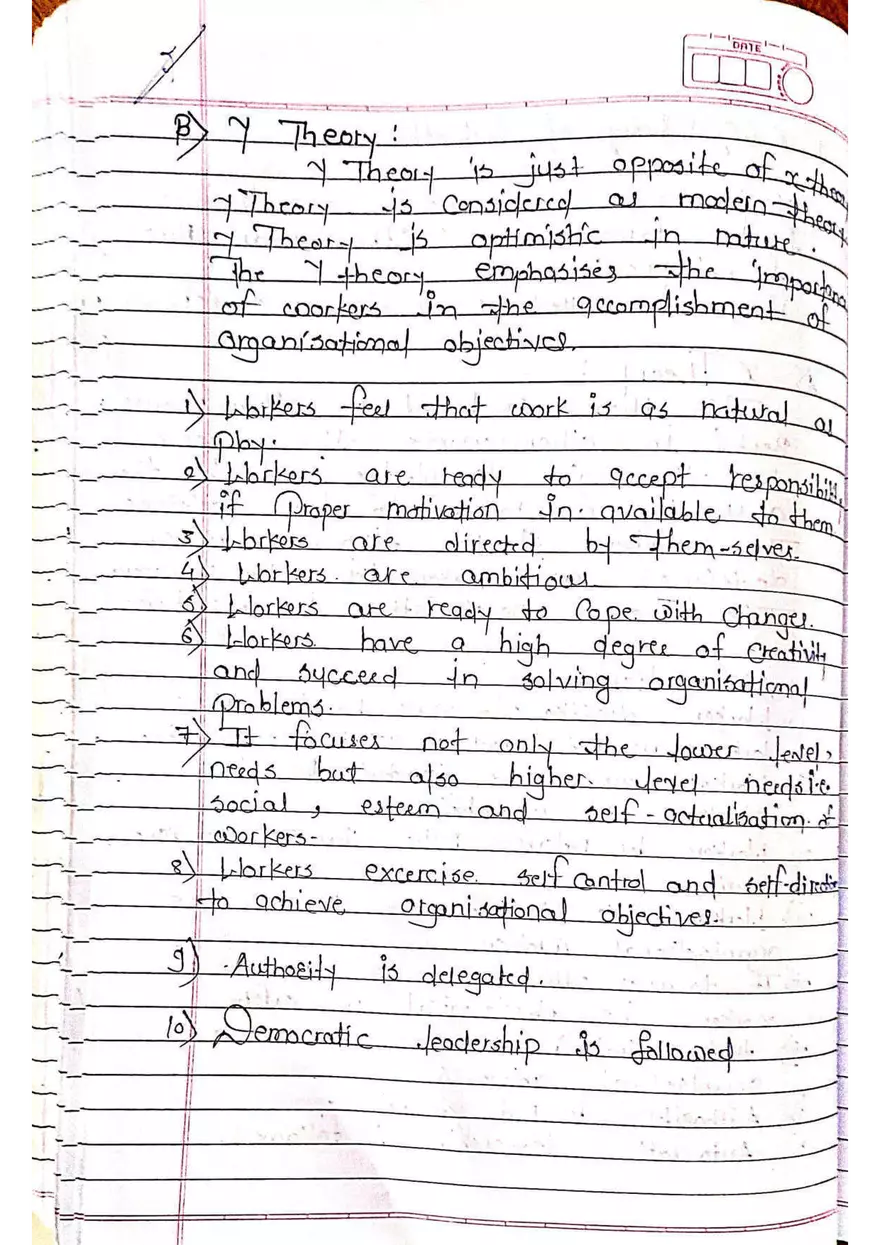 DATE
B) Y Theory :
Y Theory is just opposite of x theo
Y Theory is Considered as modern theory
Y Theory is optimistic in nature.
The Y theory emphasises the importan
of workers in the accomplishment of
organisational objectives.
1) Workers feel that work is as natural as
Play.
2) Workers are ready to accept responsibilit
if Proper motivation in available to them
3) Workers are directed by them-selves.
4) Workers are ambitious
5) Workers are ready to Cope with Changes.
6) Workers have a high degree of Creativit
and succeed in solving organisational
Problems.
7) It focuses not only the lower level,
needs but also higher level needs i.e.
social, esteem and self-actualisation of
workers-
8) Workers excercise self control and self-directio
to achieve organisational objectives.
9) Authority is delegated.
10) Democratic leadership is followed.